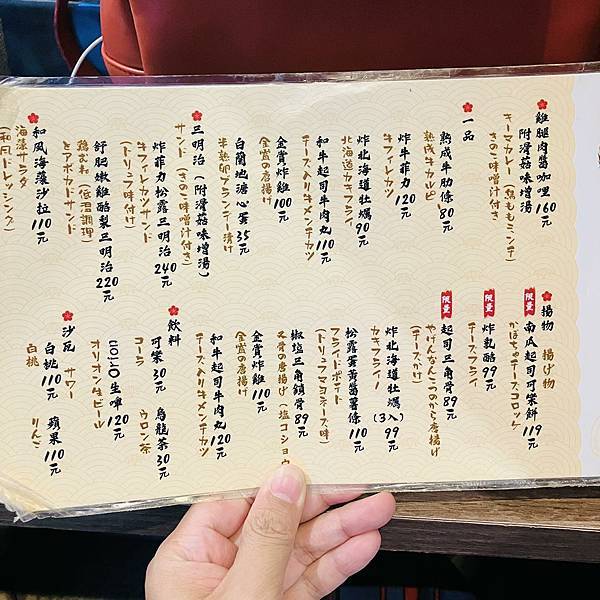 雞腿肉醬咖哩 160元
附滑菇味增湯
キーマカレー(鶏ももミンチ)
きのこ味噌汁付き
一品
熟成牛肋條 80元
熟成牛カルビ
炸牛菲力 120元
牛フィレカツ
炸北海道牡蠣 90元
北海道カキフライ
和牛起司牛肉丸 110元
チーズ入り牛メンチカツ
金賞炸雞 100元
金賞の唐揚げ
白蘭地溏心蛋 35元
半熟卵ブランデー漬け
三明治(附滑菇味增湯)
サンド(きのこ味噌汁付き)
炸菲力松露三明治 240元
牛フィレカツサンド
(トリュフ味付け)
舒肥嫩雞酪梨三明治 220元
鶏むね(低温調理)
とアボカドサンド
和風海藻沙拉 110元
海藻サラダ
(和風ドレッシング)
揚物 揚げ物
限量 南瓜起司可樂餅 119元
かぼちゃチーズコロッケ
限量 炸乳酪 99元
チーズフライ
限量 起司三角骨 89元
やげんなんこつのから唐揚げ
(チーズかけ)
炸北海道牡蠣(3入) 99元
カキフライ
松露蛋黃醬薯條 110元
フライドポテト
(トリュフマヨネーズ味)
椒塩三角鎖骨 89元
又骨の唐揚げ(塩コショウ
金賞炸雞 110元
金賞の唐揚げ
和牛起司牛肉丸 120元
チーズ入り牛メンチカツ
飲料
可樂 30元 烏龍茶 30元
コーラ ウロン茶
orion生啤 120元
オリオン生ビール
沙瓦 サワー
白桃 110元 蘋果 110元
白桃 りんご